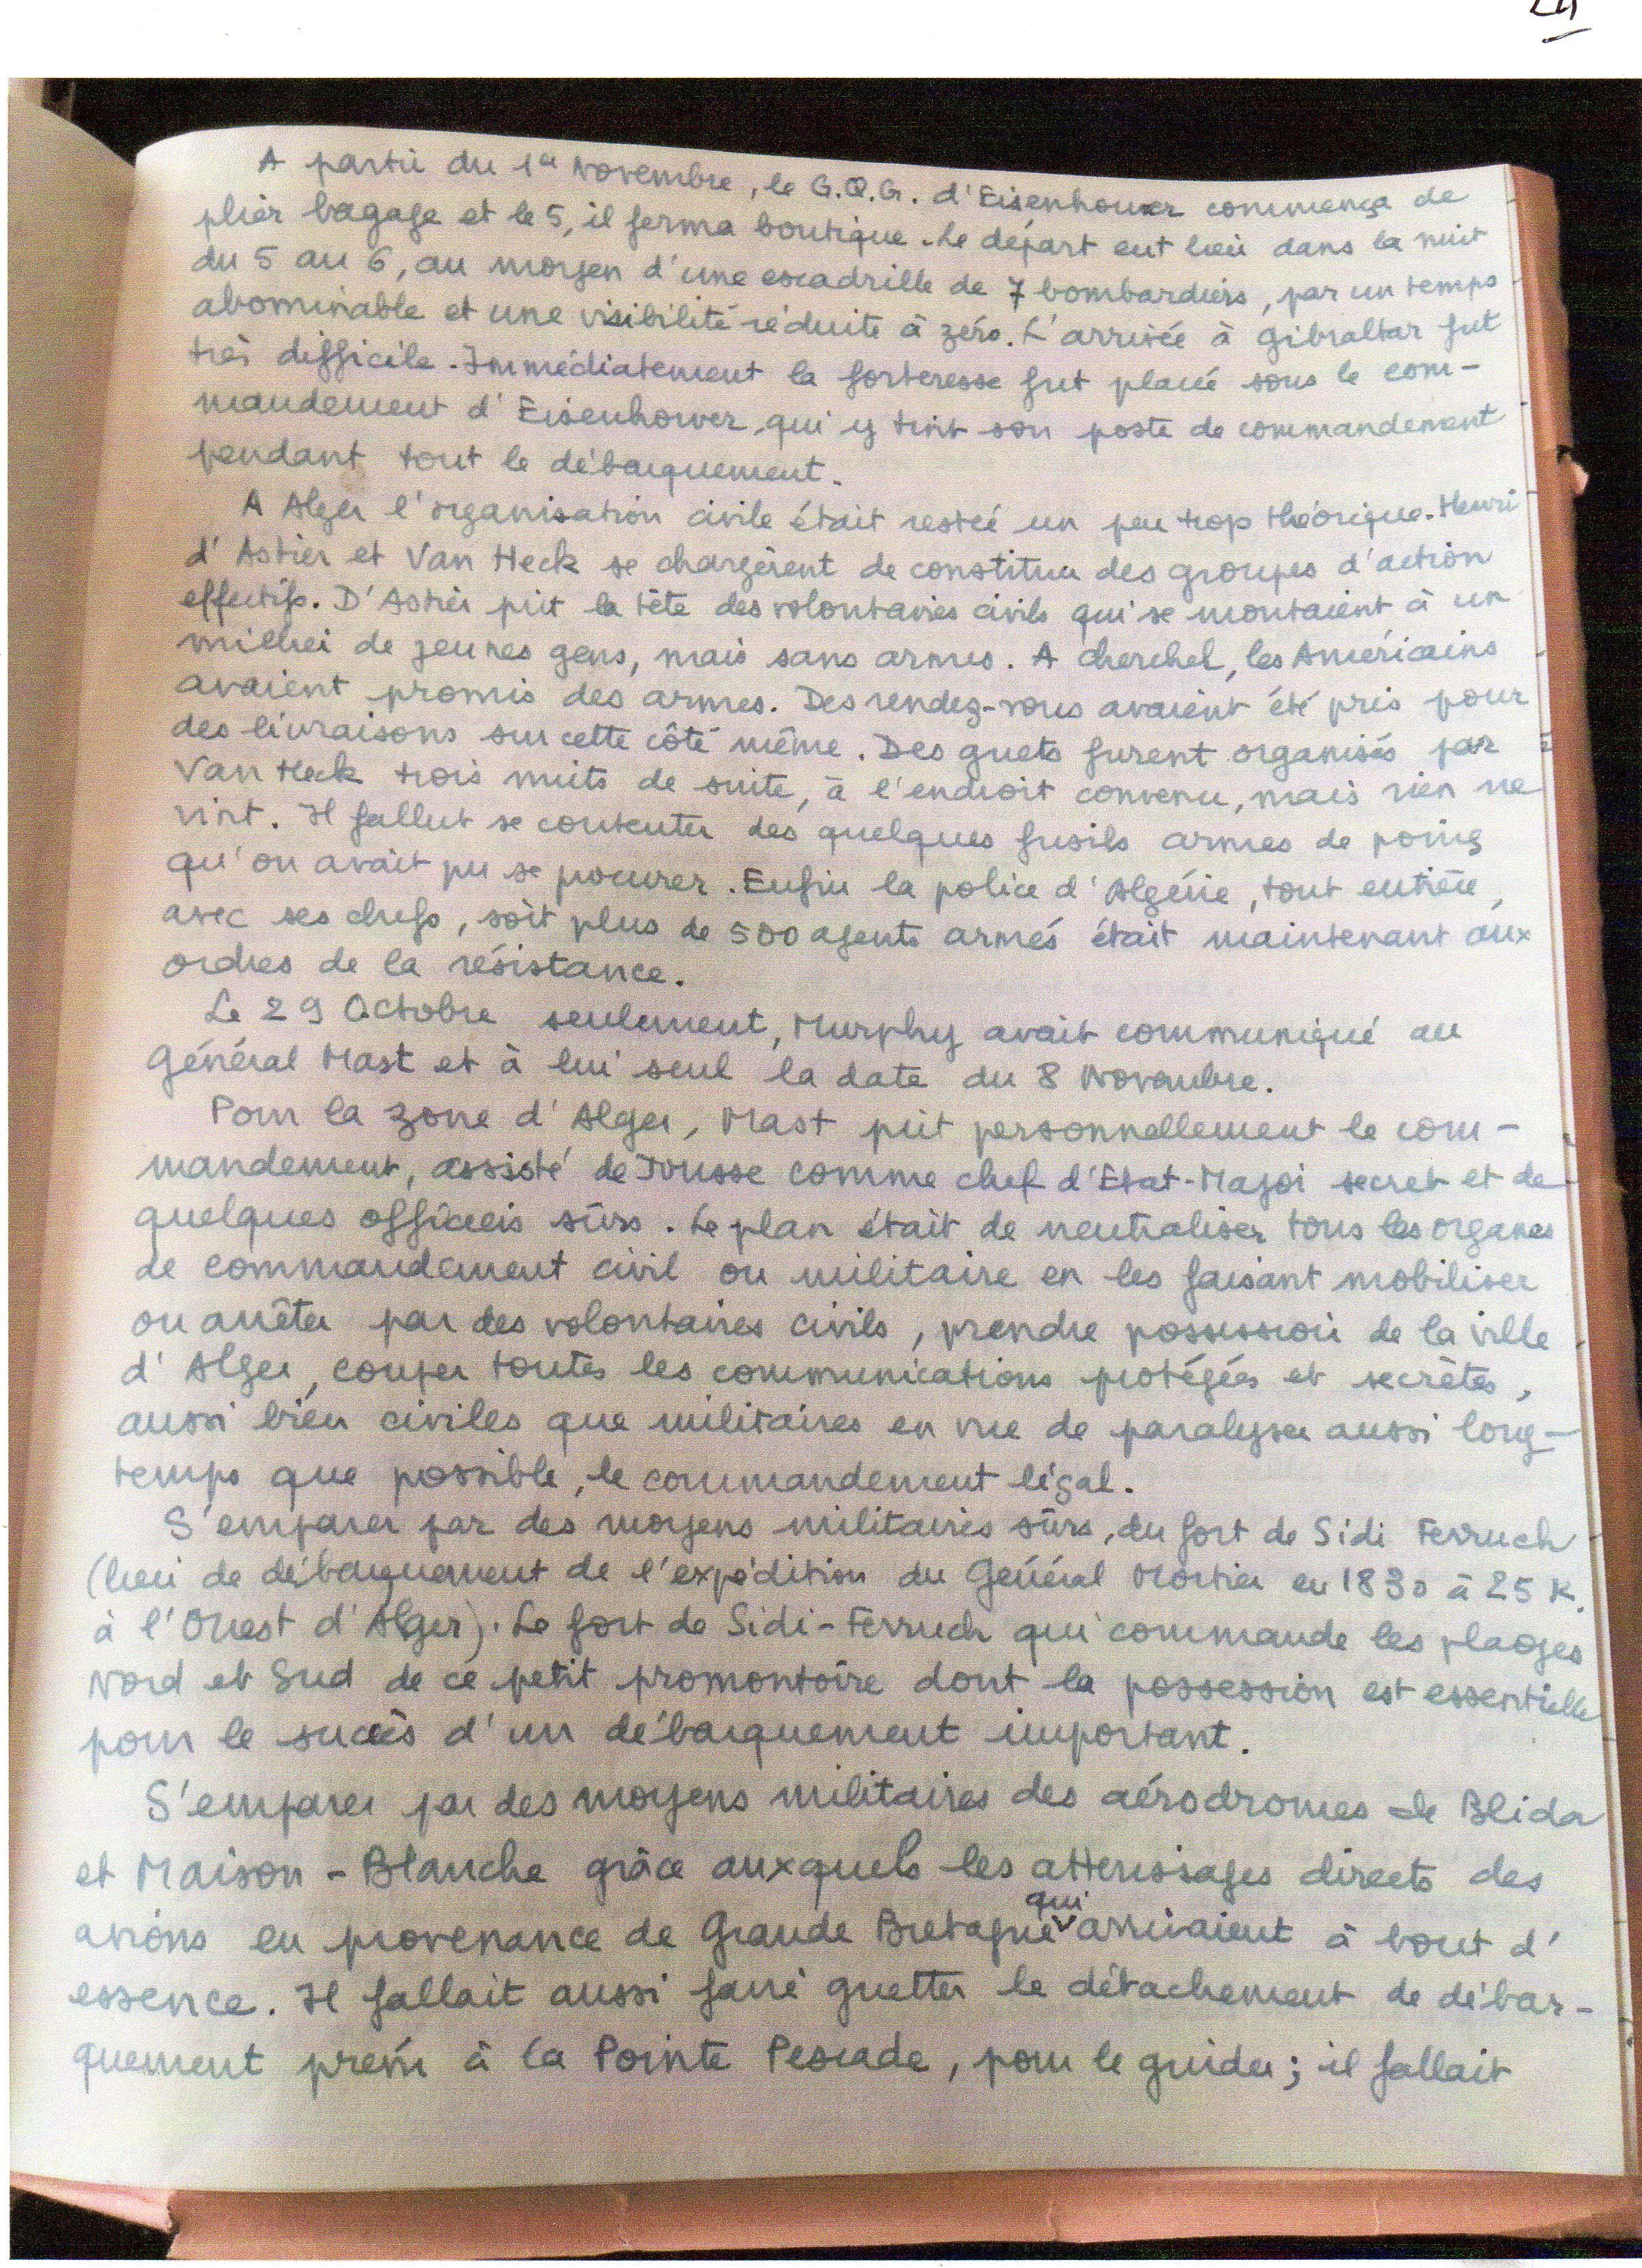 A partir du 1er Novembre, le G.Q.G. d'Eisenhower commença de
plier bagage et le 5, il ferma boutique. Le départ eut lieu dans la nuit
du 5 au 6, au moyen d'une escadrille de 7 bombardiers, par un temps
abominable et une visibilité réduite à zéro. L'arrivée à Gibraltar fut
très difficile. Immédiatement la forteresse fut placée sous le com-
mandement d'Eisenhower, qui y tint son poste de commandement
pendant tout le débarquement.
A Alger l'organisation civile était restée un peu trop théorique. Henri
d'Astier et Van Heck se chargèrent de constituer des groupes d'action
effectifs. D'Astier prit la tête des volontaires civils qui se montaient à un
millier de jeunes gens, mais sans armes. A Cherchel, les Américains
avaient promis des armes. Des rendez-vous avaient été pris pour
des livraisons sur cette côté même. Des guets furent organisés par
Van Heck trois nuits de suite, à l'endroit convenu, mais rien ne
vint. Il fallut se contenter des quelques fusils armes de poing
qu'on avait pu se procurer. Enfin la police d'Algérie, tout entière,
avec ses chefs, soit plus de 500 agents armés était maintenant aux
ordres de la résistance.
Le 29 Octobre seulement, Murphy avait communiqué au
Général Mast et à lui seul la date du 8 Novembre.
Pour la zone d'Alger, Mast prit personnellement le com-
mandement, assisté de Jousse comme chef d'Etat-Major secret et de
quelques officiers sûrs. Le plan était de neutraliser tous les organes
de commandement civil ou militaire en les faisant mobiliser
ou arrêter par des volontaires civils, prendre possession de la ville
d'Alger, couper toutes les communications protégées et secrètes,
aussi bien civiles que militaires en vue de paralyser aussi long-
temps que possible, le commandement légal.
S'emparer par des moyens militaires sûrs, du fort de Sidi Ferruch
(lieu de débarquement de l'expédition du Général Mortier en 1830 à 25 K.
à l'Ouest d'Alger). Le fort de Sidi-Ferruch qui commande les plages
Nord et Sud de ce petit promontoire dont la possession est essentielle
pour le succès d'un débarquement important.
S'emparer par des moyens militaires des aérodromes de Blida
et Maison-Blanche grâce auxquels les atterrissages directs des
avions en provenance de Grande Bretagne qui arrivaient à bout d'
essence. Il fallait aussi faire guetter le détachement de débar-
quement à la Pointe Pescade, pour le guider; il fallait